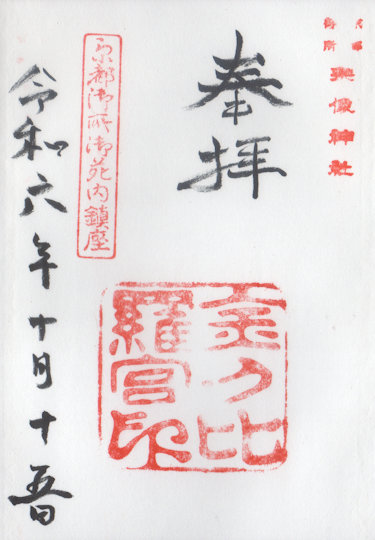 京都
御所
宗像神社
奉拝
金刀比
羅宮印
京都御所御苑内鎮座
令和六年十月十五日